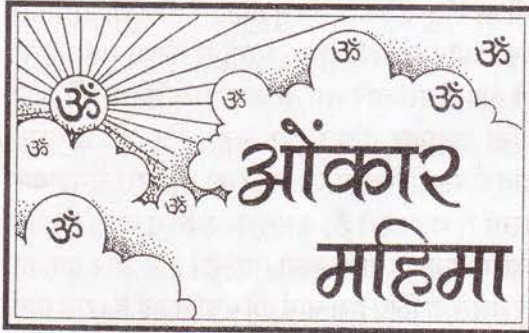 ॐ
ॐ
ॐ
ॐ
ॐ
ॐ
ॐ
ॐ
ओंकार
महिमा